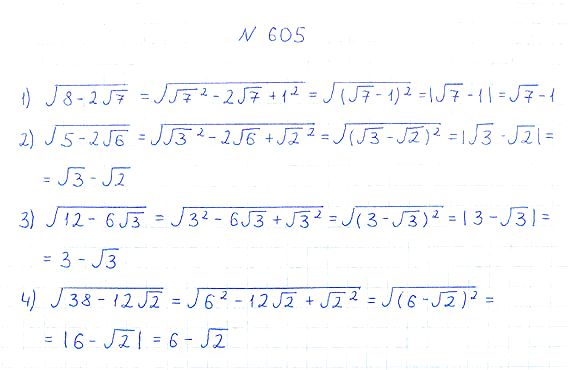 N 605
1) √(8 - 2√7) = √(√7² - 2√7 + 1²) = √((√7 - 1)²) = |√7 - 1| = √7 - 1
2) √(5 - 2√6) = √(√3² - 2√6 + √2²) = √((√3 - √2)²) = |√3 - √2| =
= √3 - √2
3) √(12 - 6√3) = √(3² - 6√3 + √3²) = √((3 - √3)²) = |3 - √3| =
= 3 - √3
4) √(38 - 12√2) = √(6² - 12√2 + √2²) = √((6 - √2)²) =
= |6 - √2| = 6 - √2